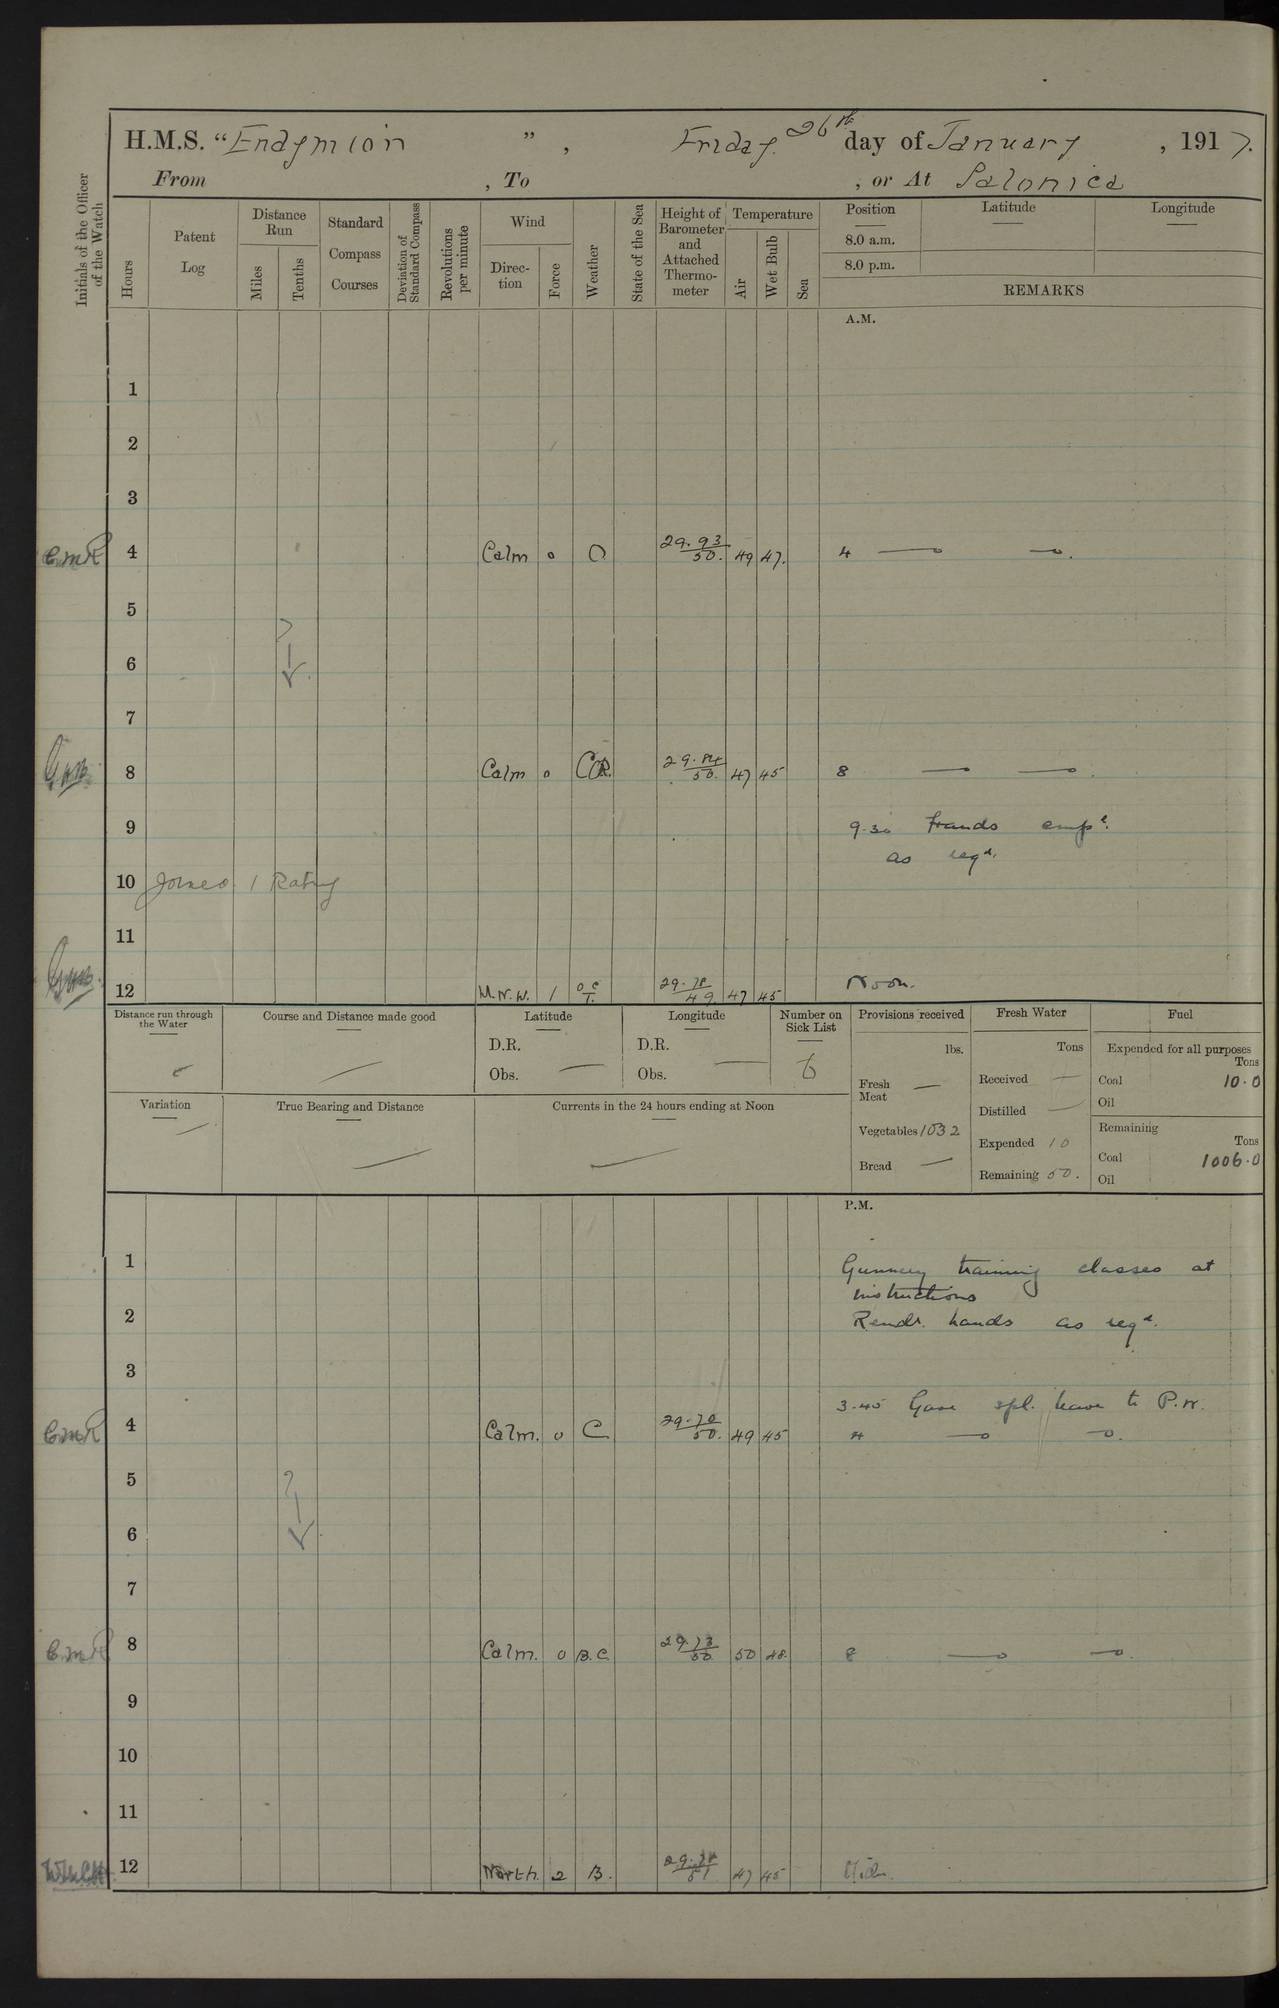 H.M.S. "Endymion", Friday 26th day of January, 1917.
From , To , or At Salonica
Initials of the Officer of the Watch
Hours
Patent Log
Distance Run
Miles
Tenths
Standard Compass Courses
Deviation of Standard Compass
Revolutions per minute
Wind
Direc-tion
Force
Weather
State of the Sea
Height of Barometer and Attached Thermo-meter
Temperature
Air
Wet Bulb
Sea
Position
Latitude
Longitude
8.0 a.m.
8.0 p.m.
REMARKS
A.M.
1
2
3
C.M.R 4 Calm 0 O 29.93 50. 49 47. 4
5
6
7
8 Calm 0 50. 47 45 8
9 9.30 Hands emp.
as reqd.
10 Joined 1 Rating
11
12 N.W. 1 49 47 45 Noon.
Distance run through the Water
Course and Distance made good
Latitude
Longitude
Number on Sick List
Provisions received
Fresh Water
Fuel
D.R.
D.R.
lbs.
Tons
Expended for all purposes
Tons
Obs.
Obs.
6
Fresh Meat
Received
Coal 10.0
Variation
True Bearing and Distance
Currents in the 24 hours ending at Noon
Distilled
Oil
Vegetables 1032
Expended 10
Remaining
Tons
Bread
Remaining 50.
Coal 1006.0
Oil
P.M.
1 Gunnery training classes at
instructions
2 Remdr. hands as reqd.
3
3.45 Gave spl. leave to P.W.
C.M.R 4 Calm. 0 C 29.70 50. 49 45 4
5
6
7
C.M.R 8 Calm. 0 B.C. 29.73 50 50 48. 8
9
10
11
12 North. 2 B. 51 47 45 Mid.